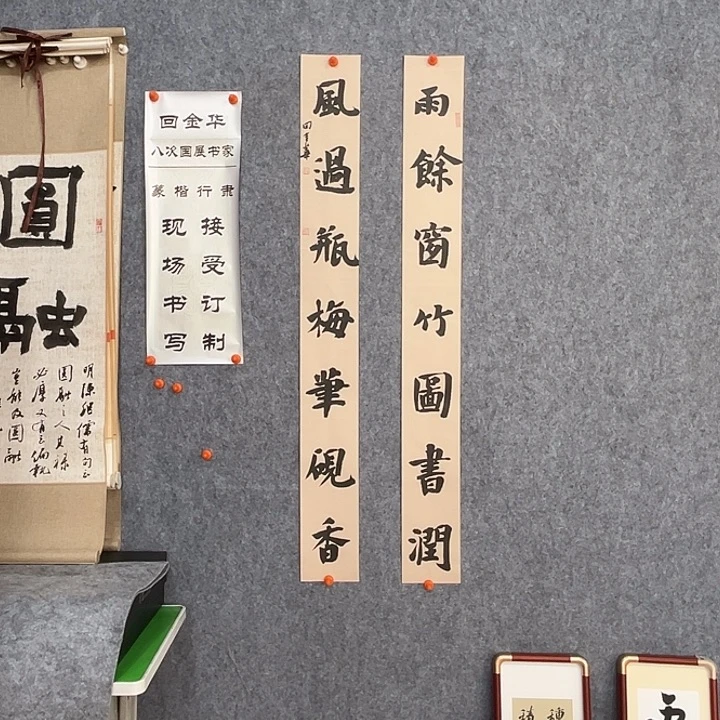 雨餘窗竹圖書潤
風過瓶梅筆硯香
回金华
八次国展书家
篆楷行隶
接受订制
现场书写
圓融